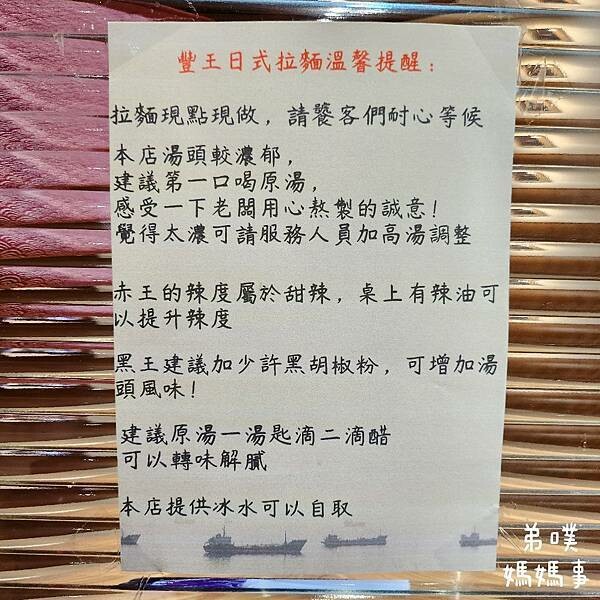 豐王日式拉麵溫馨提醒：
拉麵現點現做，請饕客們耐心等候
本店湯頭較濃郁，
建議第一口喝原湯，
感受一下老闆用心熬製的誠意！
覺得太濃可請服務人員加高湯調整
赤王的辣度屬於甜辣，桌上有辣油可
以提升辣度
黑王建議加少許黑胡椒粉，可增加湯
頭風味！
建議原湯一湯匙滴二滴醋
可以轉味解膩
本店提供冰水可以自取
弟噗
媽媽事